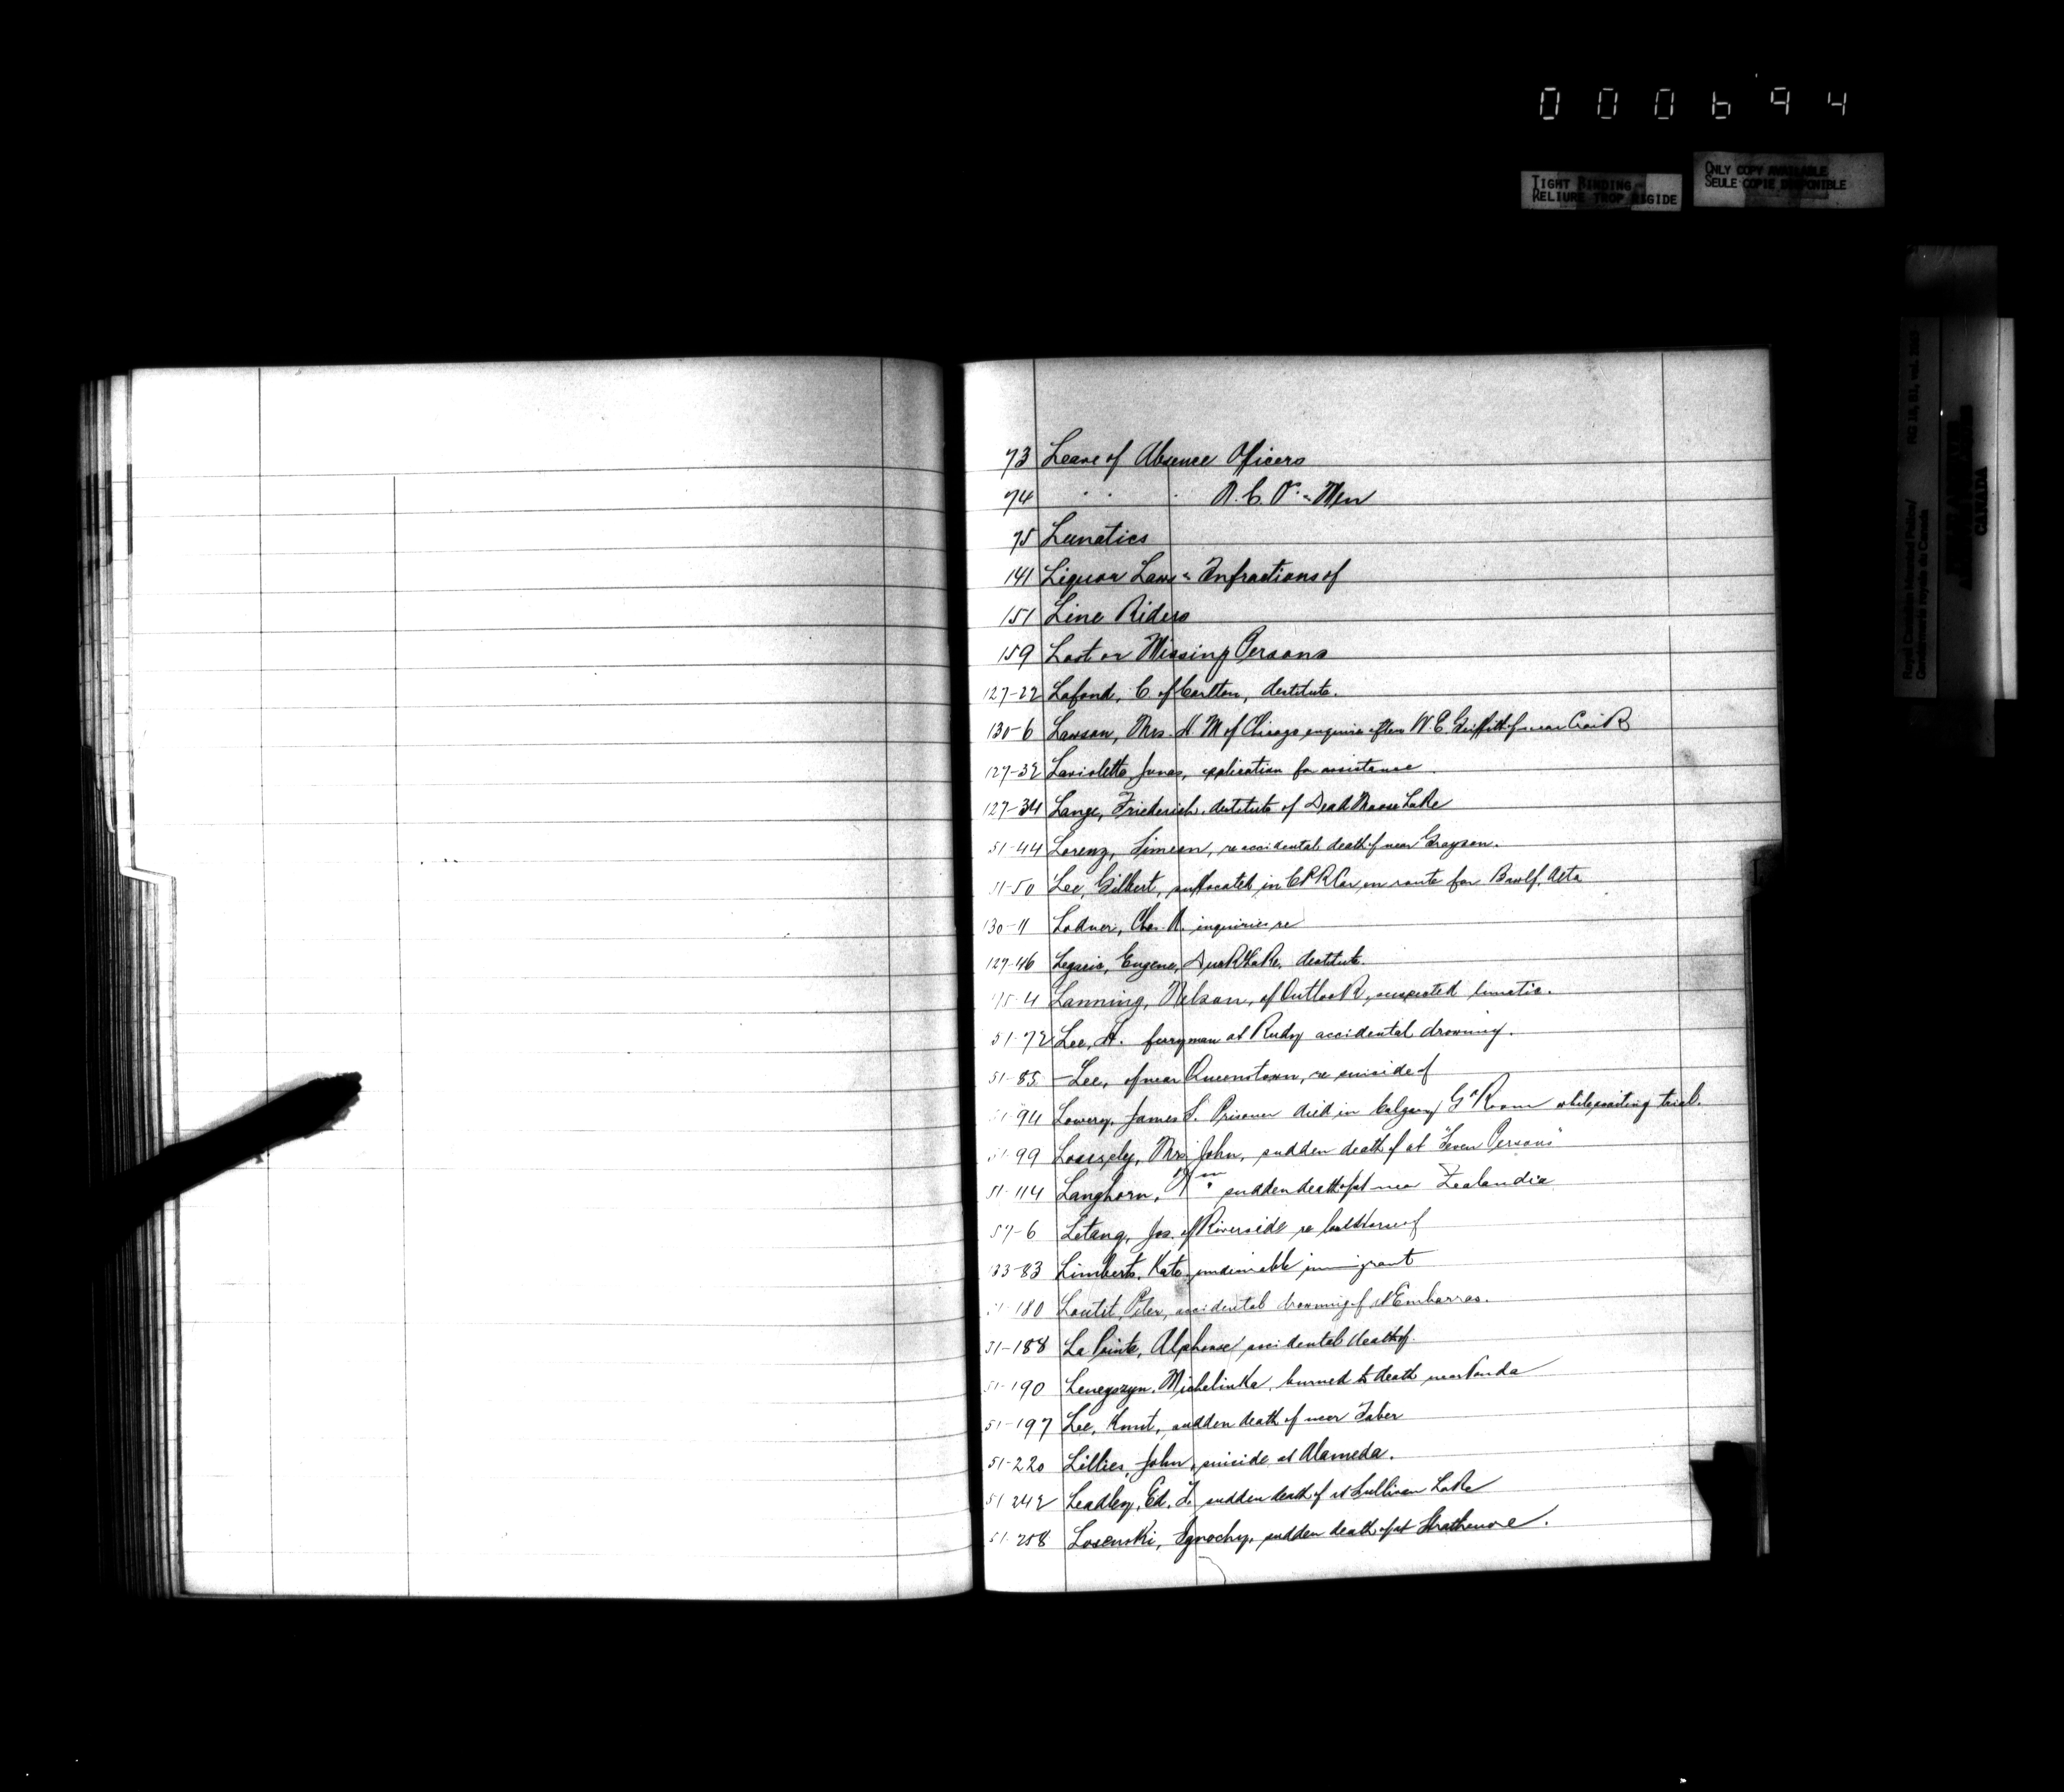 000694
TIGHT BINDING
RELIURE TROP RIGIDE
ONLY COPY AVAILABLE
SEULE COPIE DISPONIBLE
Royal Canadian Mounted Police/ RG 18, B1, vol.
Gendarmerie royale du Canada
CANADA
L
73 Leave of Absence Officers
74 " " " N.C.O's & Men
75 Lunatics
141 Liquor Laws - Infractions of
151 Line Riders
159 Lost or Missing Persons
127-22 Lafond, C. of Carlton, destitute.
130-6 Lawson, Mrs. H M of Chicago enquires after W. E. Griffith of near Craik
127-32 Laviolette, Junas, application for assistance
127-34 Lange, Friederich, destitute of Dead Moose Lake
51-44 Lorenz, Simeon, re accidental death of near Grayson.
51-50 Lee, Gilbert, suffocated in CPR Car en route for Bawlf, Alta
130-11 Chas. R. inquiries re
127-46 Eugene, Duck Lake, destitute.
75-4 Lanning, Nelson, of Outlook, suspected lunatic.
51-72 Lee, A. ferryman at Rudy accidental drowning.
51-85 - Lee, of near Queenstown, re suicide of
51-94 Lowery, James S. Prisoner died in Calgary Gd Room while awaiting trial.
51-99 Mrs John, sudden death of at "Seven Persons"
51-114 Langhorn, Wm sudden death of at near Zealandia
57-6 Letang, Jos. of Riverside re lost Horse of
33-83 Limberts, Kate, undesirable immigrant
51-180 Loutit, Peter, accidental drowning of, at Embarras.
51-188 La Pointe, Alphonse accidental death of.
51-190 Michelinka, burned to death near Vonda
51-197 Lee, Knut, sudden death of near Taber
51-220 Lillies, John, suicide at Alameda.
51-242 Leadley, Ed. F. sudden death of at Sullivan Lake
51-258 Losenski, Ignachy, sudden death of at Strathmore.